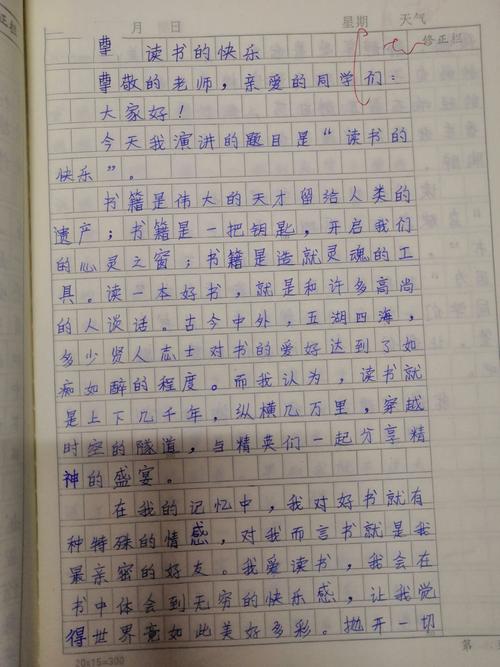 月 日 星期 天气
尊 读书的快乐 修正栏
尊敬的老师，亲爱的同学们：
大家好！
今天我演讲的题目是“读书的
快乐”。
书籍是伟大的天才留给人类的
遗产；书籍是一把钥匙，开启我们
的心灵之窗；书籍是造就灵魂的工
具。读一本好书，就是和许多高尚
的人谈话。古今中外，五湖四海，
多少贤人志士对书的爱好达到了如
痴如醉的程度。而我认为，读书就
是上下几千年，纵横几万里，穿越
时空的隧道，与精英们一起分享精
神的盛宴。
在我的记忆中，我对好书就有
种特殊的情感，对我而言书就是我
最亲密的好友。我爱读书，我会在
书中体会到无穷的快乐感，让我觉
得世界竟如此美好多彩。抛开一切
20×15=300
第